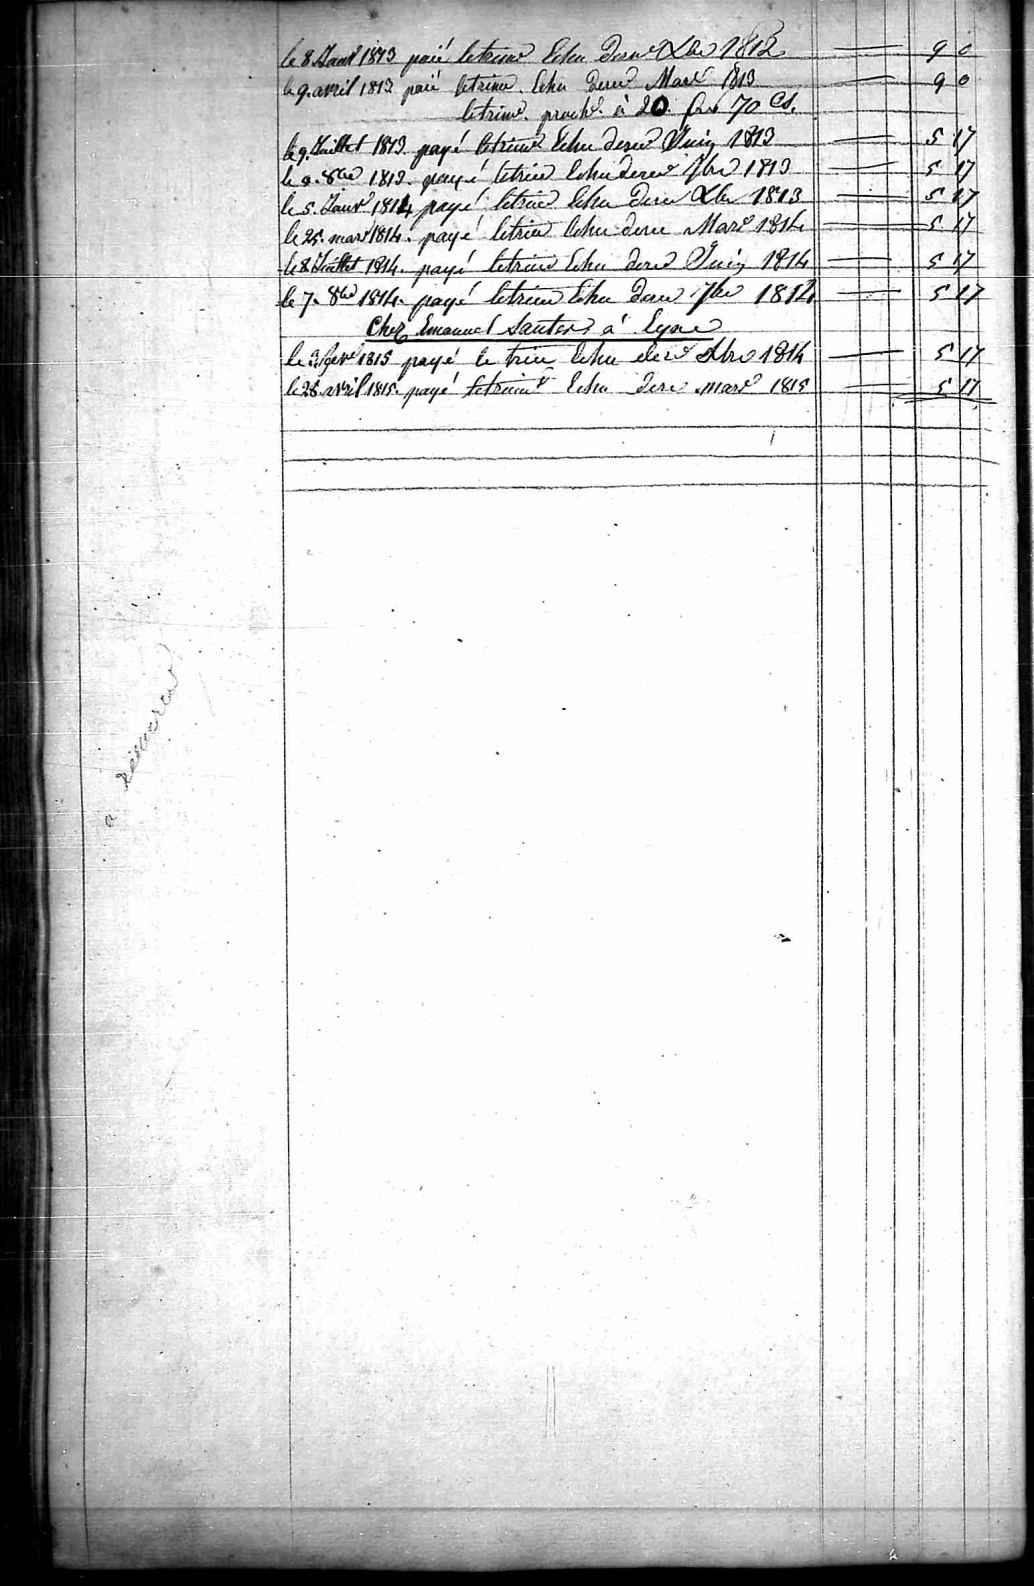 le 8 Janvr 1813 paié le trime Echu derer Xbre 1812 — 9 0
le 9. avril 1813 paié le trime. Echu derer Mars 1813 — 9 0
le trime. proche. à 20. frs 70 Cs.
le 9. Juillet 1813. payé le trime Echu derer Juin 1813 — 5 17
le 9. 8bre 1813. payé le trime Echu derer 7bre 1813 — 5 17
le 5. Janvr 1814 payé le trime Echu derer Xbre 1813 — 5 17
le 25. mars 1814. payé le trime Echu derer Mars 1814 — 5 17
le 8 Juillet 1814. payé le trime Echu derer Juin 1814 — 5 17
le 7. 8bre 1814. payé le trime Echu derer 7bre 1814 — 5 17
Chez Emanuel Sauter à
le 3. fevr 1815 payé le trime Echu derer Xbre 1814 — 5 17
le 28. avril 1815. payé le trime Echu derer mars 1815 — 5 17